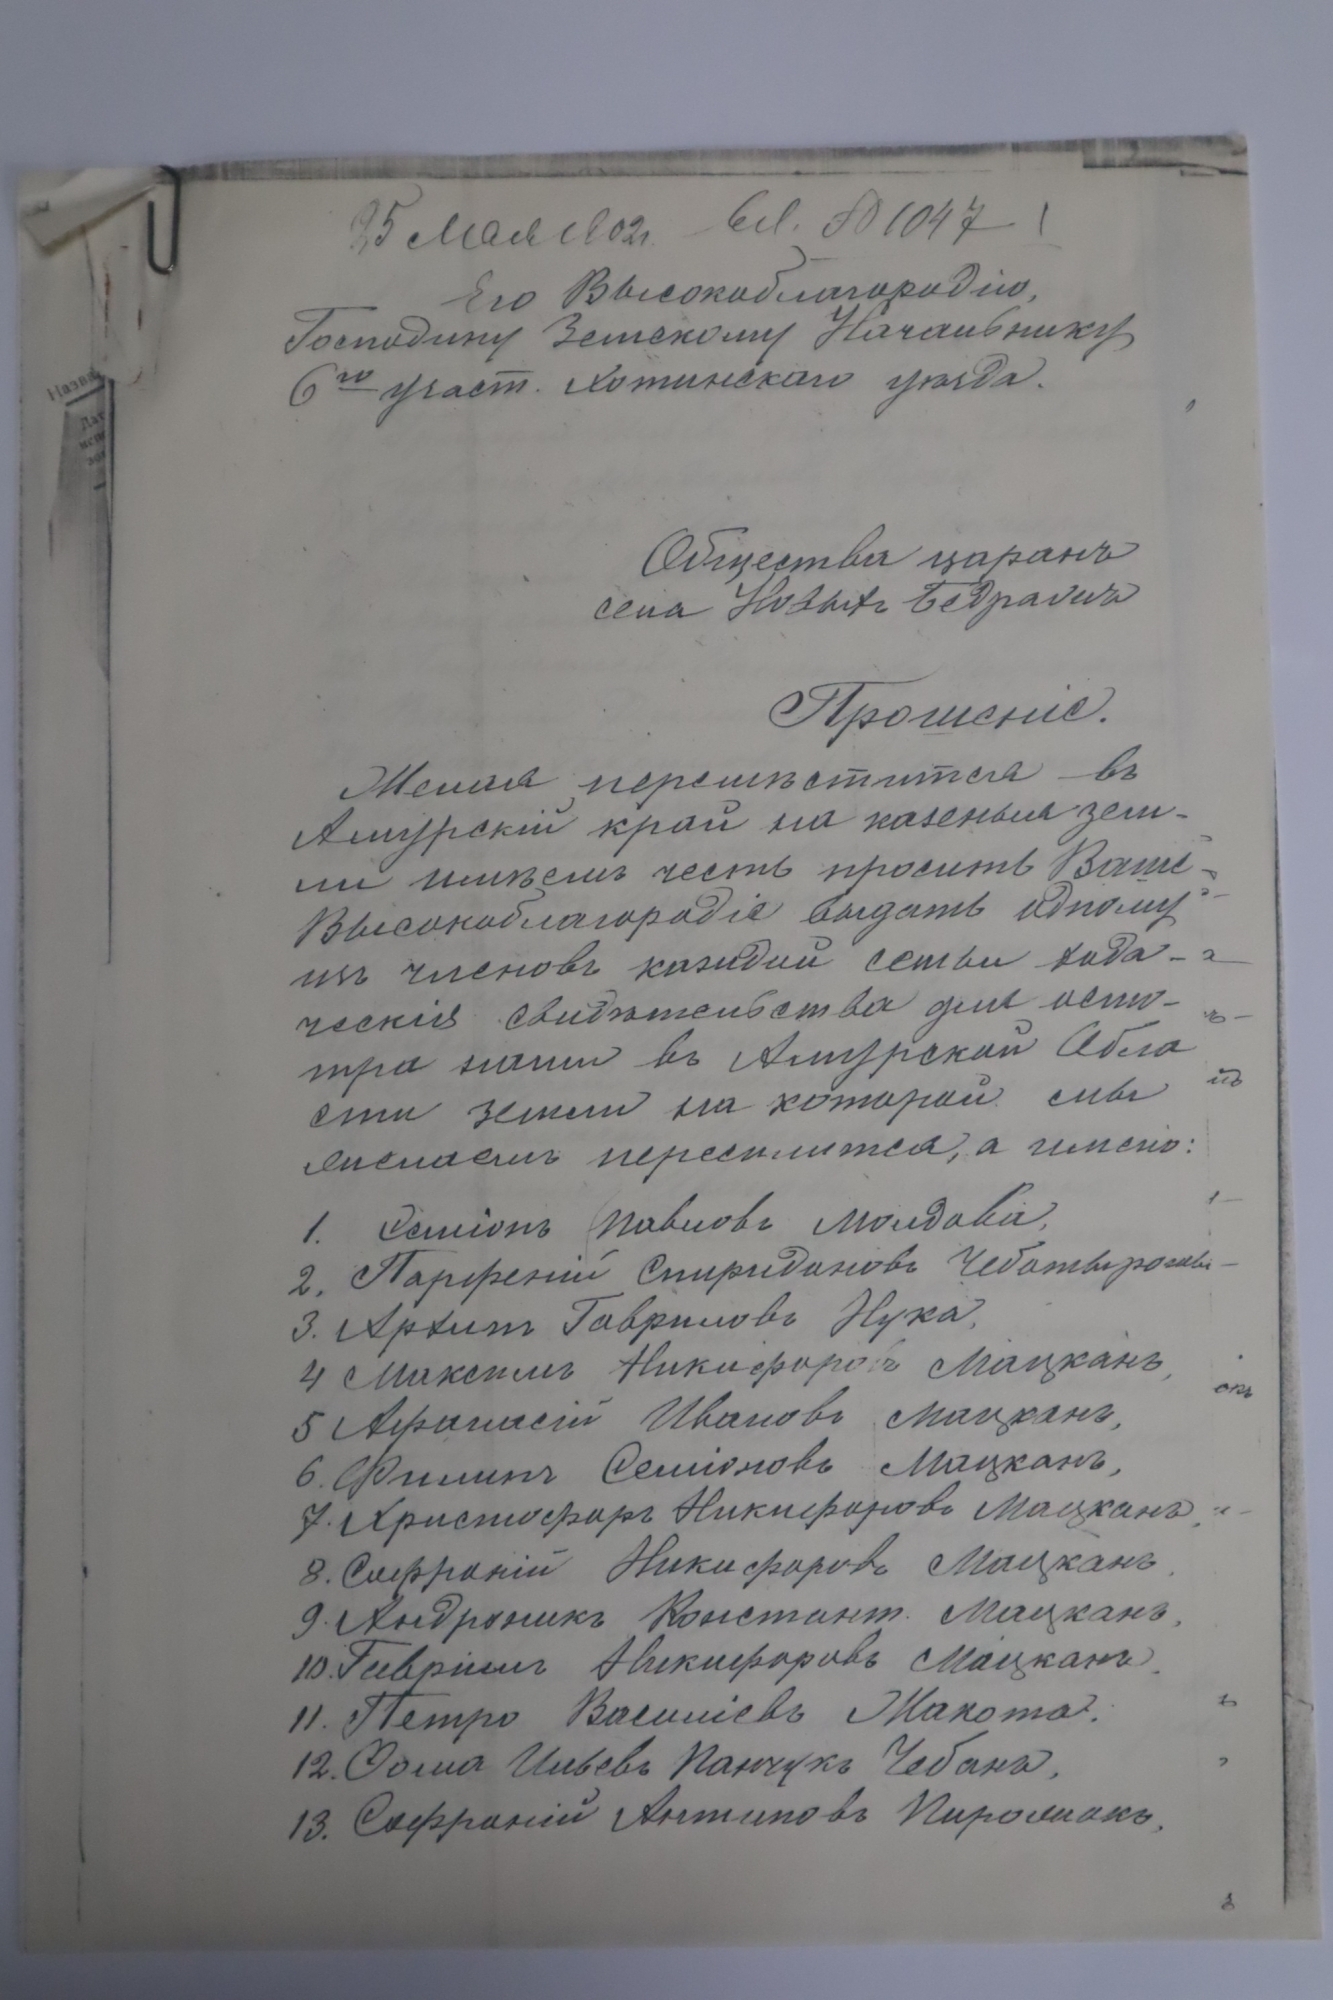 25 Мая 1902г. вх. № 1047
Его Высокоблагородію,
Господину Земскому Начальнику
6го участ. Хотинскаго уѣзда.
Общества царанъ
села Новыхъ Бедражъ
Прошеніе.
Желая перемѣститтся въ
Амурскій край на казеныя зем-
ли имѣемъ честь просить Ваше
Высокоблагородіе выдать одному
изъ членовъ каждой семьи хода-
ческія свидѣтельства для осмо-
тра нами въ Амурской Обла
сти земли на которой мы
желаемъ переселится, а имено:
1. Семіонъ Павловъ Молдова,
2. Парфеній Спиридоновъ Чеботыро
3. Архип Гавриловъ Нука,
4 Максимъ Никифоровъ Мацканъ,
5 Афанасій Ивановъ Мацканъ,
6. Филипъ Семіоновъ Мацканъ,
7. Христофоръ Никифоровъ Мацканъ,
8. Софроній Никифоровъ Мацканъ,
9. Андроникъ Констант. Мацканъ,
10. Гавріилъ Никифоровъ Мацканъ,
11. Петро Василіевъ Макота.
12. Фома Ильевъ Панчукъ Чебанъ,
13. Софроній Антиповъ